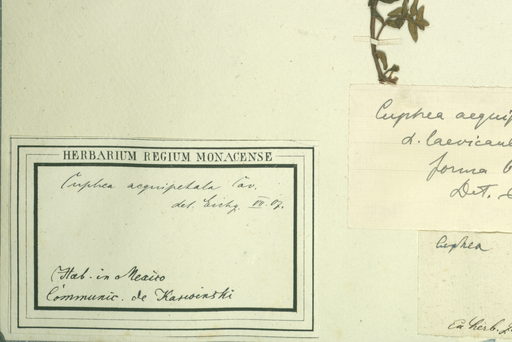 HERBARIUM REGIUM MONACENSE
Cuphea aequipetala Cav.
det.
Hab. in Mexico
Communic. de Karwinski
Cuphea aequip
α. laevicaul
forma b
Det.
Cuphea
Ex herb.